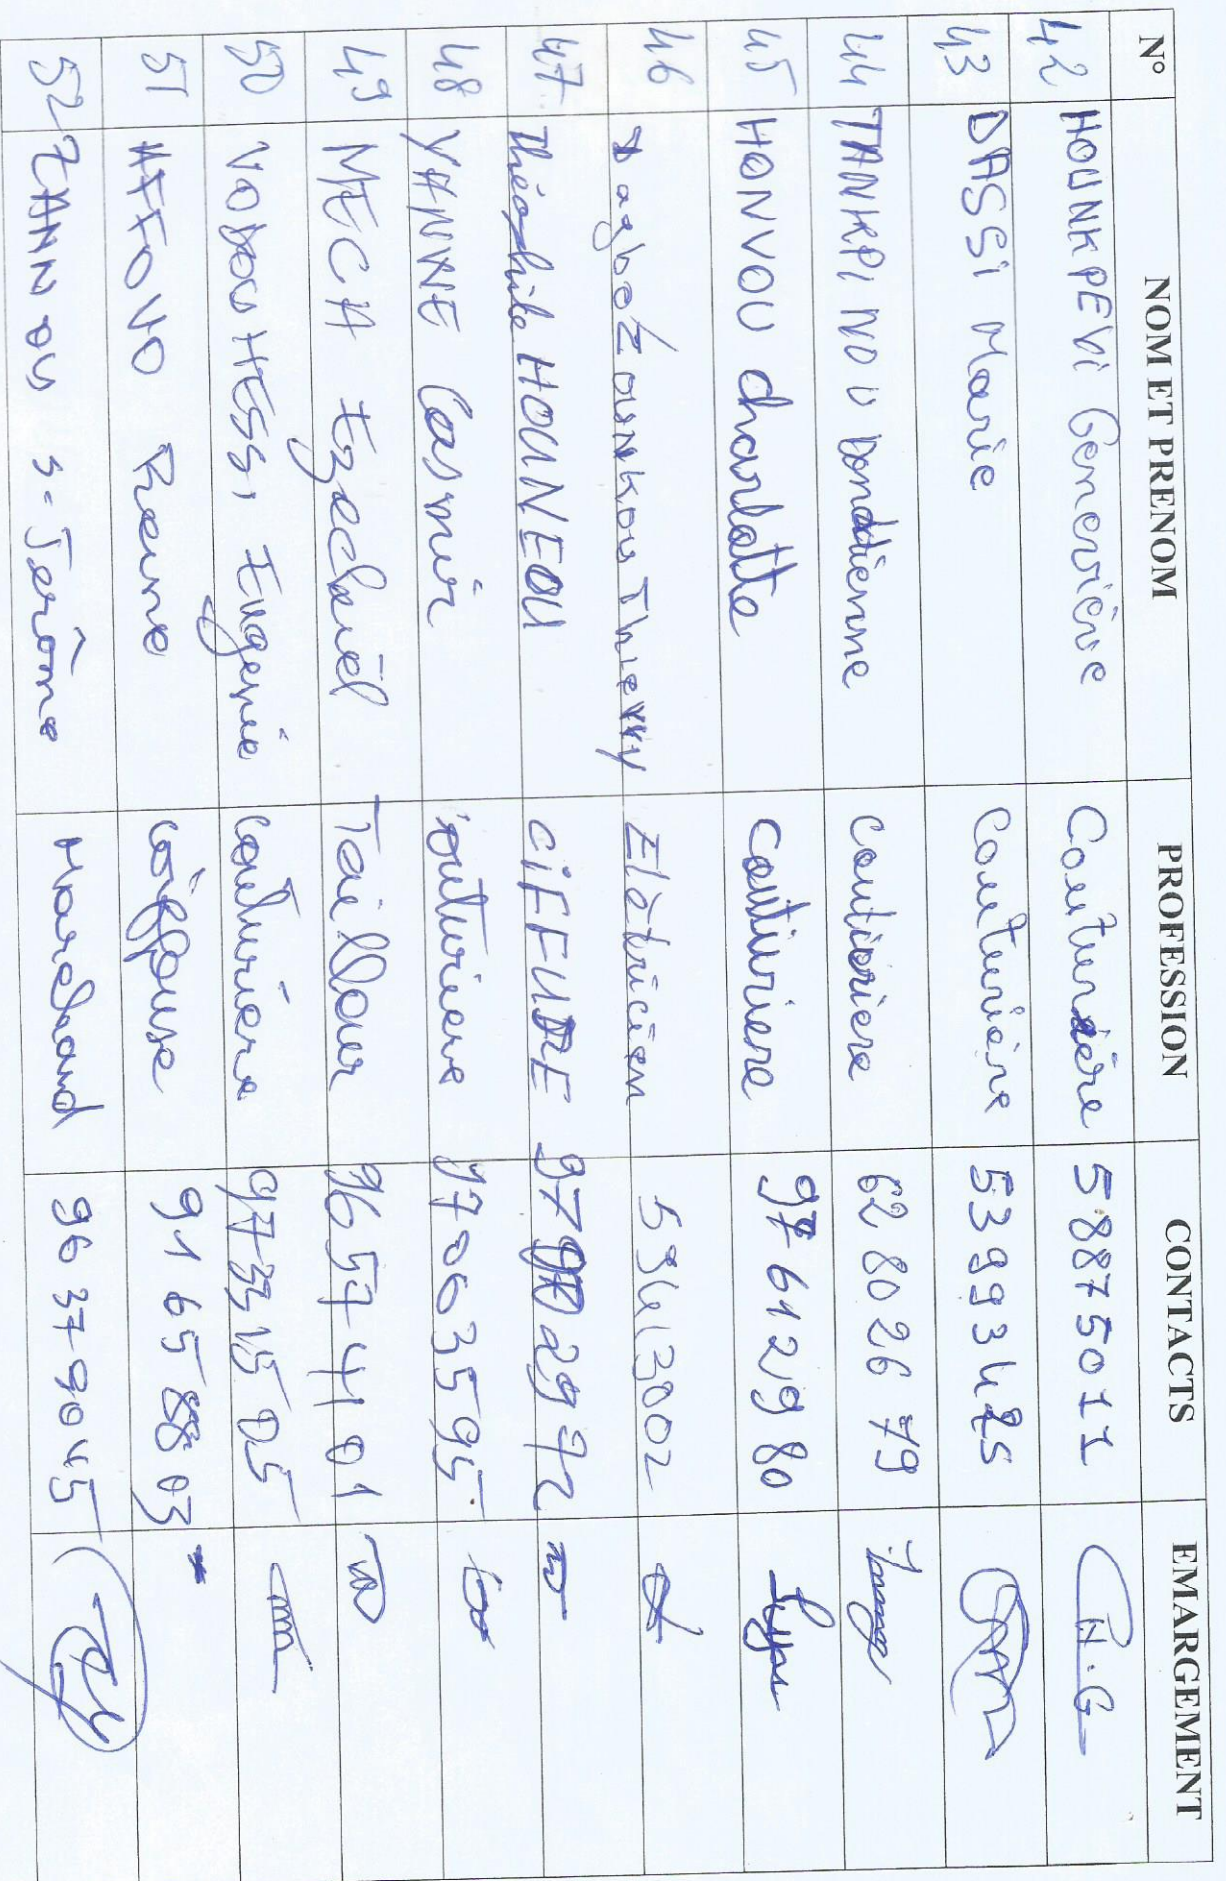 N° NOM ET PRENOM PROFESSION CONTACTS EMARGEMENT
42 HOUNKPEVI Geneviève Couturière 58875011 H.G
43 DASSI Marie Couturière 53993425
44 TANKPINOU Dondienne coutioriere 62 80 26 79
45 HONVOU charlotte coutiuriere 97 61 29 80
46 DagboZounkou Thierry Elètricien 59413002
47 Théophile HOUNEOU CiFFURE 97902972
48 YANNE Casmir couturiere 97003595
49 MECH Ezechiel Tailleur 96574101
50 VODOUHESSI Eugenie Couturière 97331505
51 AFFOVO Reine Coiffeuse 91 65 88 03
52 ZANNOU S-Jerôme Marchand 96 37 90 45